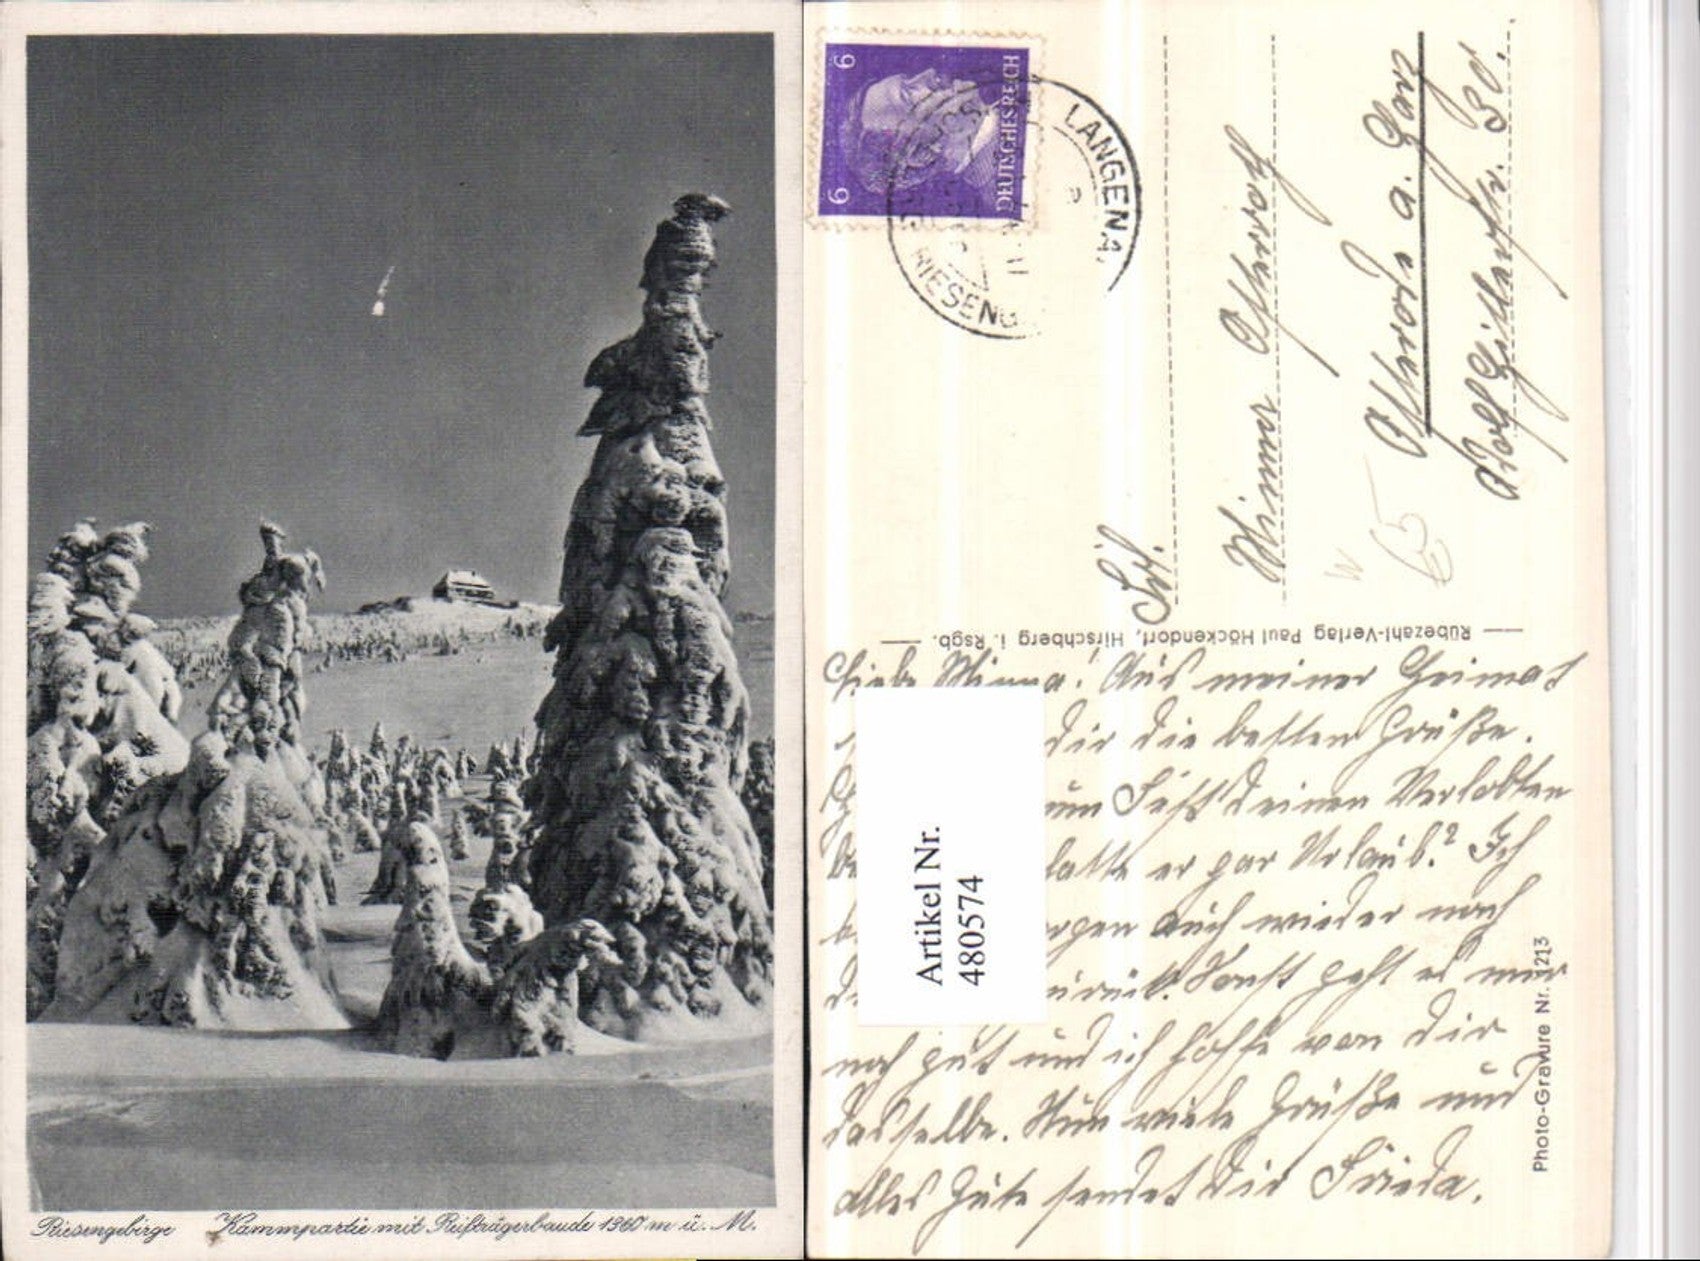 Riesengebirge Kammpartie mit Reifträgerbaude 1360 m ü. M.
6 6
DEUTSCHES REICH
LANGENA
RIESENG
Frl.
Minna
Osterode a. Harz
Adolf Hitlerstr. 30.
65
Rübezahl-Verlag Paul Höckendorf, Hirschberg i. Rsgb.
Liebe Minna! Aus meiner Heimat
dir die besten Grüße.
zum Fest deinen Verlobten
hatte er gar Urlaub? Ich
morgen auch wieder nach
zurück. Sonst geht es mir
noch gut und ich hoffe von dir
dasselbe. Nun viele Grüße und
alles Gute sendet dir Frieda.
Artikel Nr.
480574
Photo-Gravure Nr. 1213